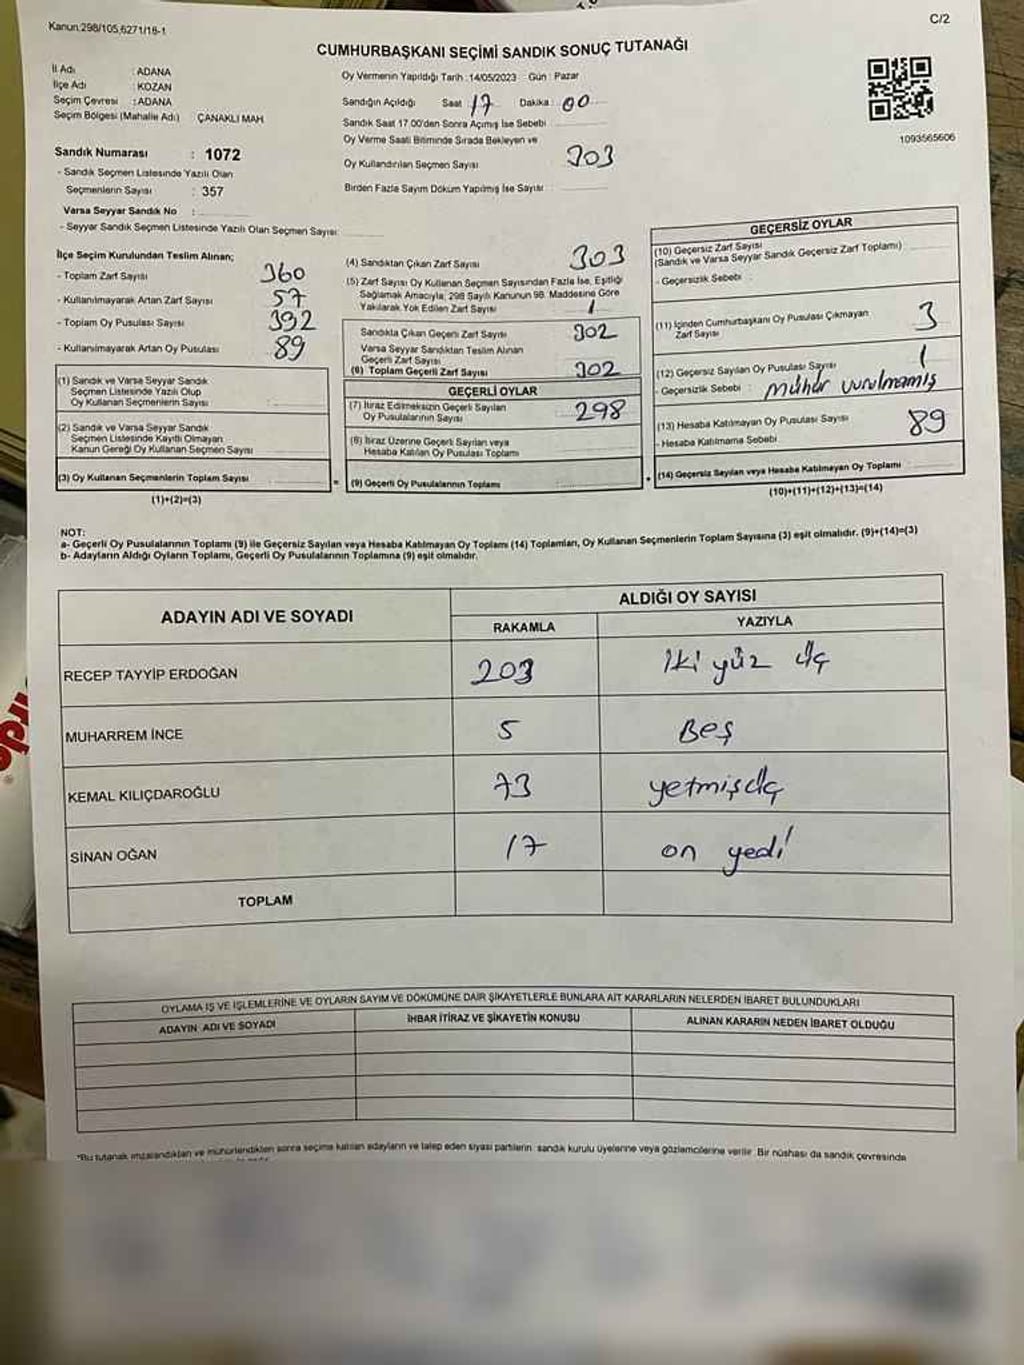 Kanun:298/105,6271/18-1
C/2
CUMHURBAŞKANI SEÇİMİ SANDIK SONUÇ TUTANAĞI
İl Adı : ADANA
İlçe Adı : KOZAN
Seçim Çevresi : ADANA
Seçim Bölgesi (Mahalle Adı) ÇANAKLI MAH.
Sandık Numarası : 1072
- Sandık Seçmen Listesinde Yazılı Olan
Seçmenlerin Sayısı : 357
Varsa Seyyar Sandık No :
- Seyyar Sandık Seçmen Listesinde Yazılı Olan Seçmen Sayısı:
Oy Vermenin Yapıldığı Tarih :14/05/2023 Gün : Pazar
Sandığın Açıldığı Saat 17 Dakika : 00
Sandık Saat 17.00'den Sonra Açımış İse Sebebi
Oy Verme Saati Bitiminde Sırada Bekleyen ve
Oy Kullandırılan Seçmen Sayısı 303
Birden Fazla Sayım Döküm Yapılmış İse Sayısı :
1093565606
İlçe Seçim Kurulundan Teslim Alınan;
- Toplam Zarf Sayısı 360
- Kullanılmayarak Artan Zarf Sayısı 57
- Toplam Oy Pusulası Sayısı 392
- Kullanılmayarak Artan Oy Pusulası 89
(1) Sandık ve Varsa Seyyar Sandık
Seçmen Listesinde Yazılı Olup
Oy Kullanan Seçmenlerin Sayısı :
(2) Sandık ve Varsa Seyyar Sandık
Seçmen Listesinde Kayıtlı Olmayan
Kanun Gereği Oy Kullanan Seçmen Sayısı
(3) Oy Kullanan Seçmenlerin Toplam Sayısı
(1)+(2)=(3)
(4) Sandıktan Çıkan Zarf Sayısı 303
(5) Zarf Sayısı Oy Kullanan Seçmen Sayısından Fazla İse, Eşitliği
Sağlamak Amacıyla; 298 Sayılı Kanunun 98. Maddesine Göre
Yakılarak Yok Edilen Zarf Sayısı 1
Sandıkla Çıkan Geçerli Zarf Sayısı 302
Varsa Seyyar Sandıktan Teslim Alınan
Geçerli Zarf Sayısı
(6) Toplam Geçerli Zarf Sayısı 302
GEÇERLİ OYLAR
(7) İtiraz Edilmeksizin Geçerli Sayılan
Oy Pusulalarının Sayısı 298
(8) İtiraz Üzerine Geçerli Sayılan veya
Hesaba Katılan Oy Pusulası Toplamı
= (9) Geçerli Oy Pusulalarının Toplamı
GEÇERSİZ OYLAR
(10) Geçersiz Zarf Sayısı
(Sandık ve Varsa Seyyar Sandık Geçersiz Zarf Toplamı)
- Geçersizlik Sebebi :
(11) İçinden Cumhurbaşkanı Oy Pusulası Çıkmayan
Zarf Sayısı 3
(12) Geçersiz Sayılan Oy Pusulası Sayısı 1
- Geçersizlik Sebebi : mühür vurulmamış
(13) Hesaba Katılmayan Oy Pusulası Sayısı 89
- Hesaba Katılmama Sebebi :
+ (14) Geçersiz Sayılan veya Hesaba Katılmayan Oy Toplamı
(10)+(11)+(12)+(13)=(14)
NOT:
a- Geçerli Oy Pusulalarının Toplamı (9) ile Geçersiz Sayılan veya Hesaba Katılmayan Oy Toplamı (14) Toplamları, Oy Kullanan Seçmenlerin Toplam Sayısına (3) eşit olmalıdır. (9)+(14)=(3)
b- Adayların Aldığı Oyların Toplamı, Geçerli Oy Pusulalarının Toplamına (9) eşit olmalıdır.
ADAYIN ADI VE SOYADI ALDIĞI OY SAYISI
RAKAMLA YAZIYLA
RECEP TAYYİP ERDOĞAN 203 İki yüz üç
MUHARREM İNCE 5 Beş
KEMAL KILIÇDAROĞLU 73 yetmişüç
SİNAN OĞAN 17 on yedi
TOPLAM
OYLAMA İŞ VE İŞLEMLERİNE VE OYLARIN SAYIM VE DÖKÜMÜNE DAİR ŞİKAYETLERLE BUNLARA AİT KARARLARIN NELERDEN İBARET BULUNDUKLARI
ADAYIN ADI VE SOYADI İHBAR İTİRAZ VE ŞİKAYETİN KONUSU ALINAN KARARIN NEDEN İBARET OLDUĞU
*Bu tutanak imzalandıktan ve mühürlendikten sonra seçime katılan adayların ve talep eden siyasi partilerin sandık kurulu üyelerine veya gözlemcilerine verilir. Bir nüshası da sandık çevresinde